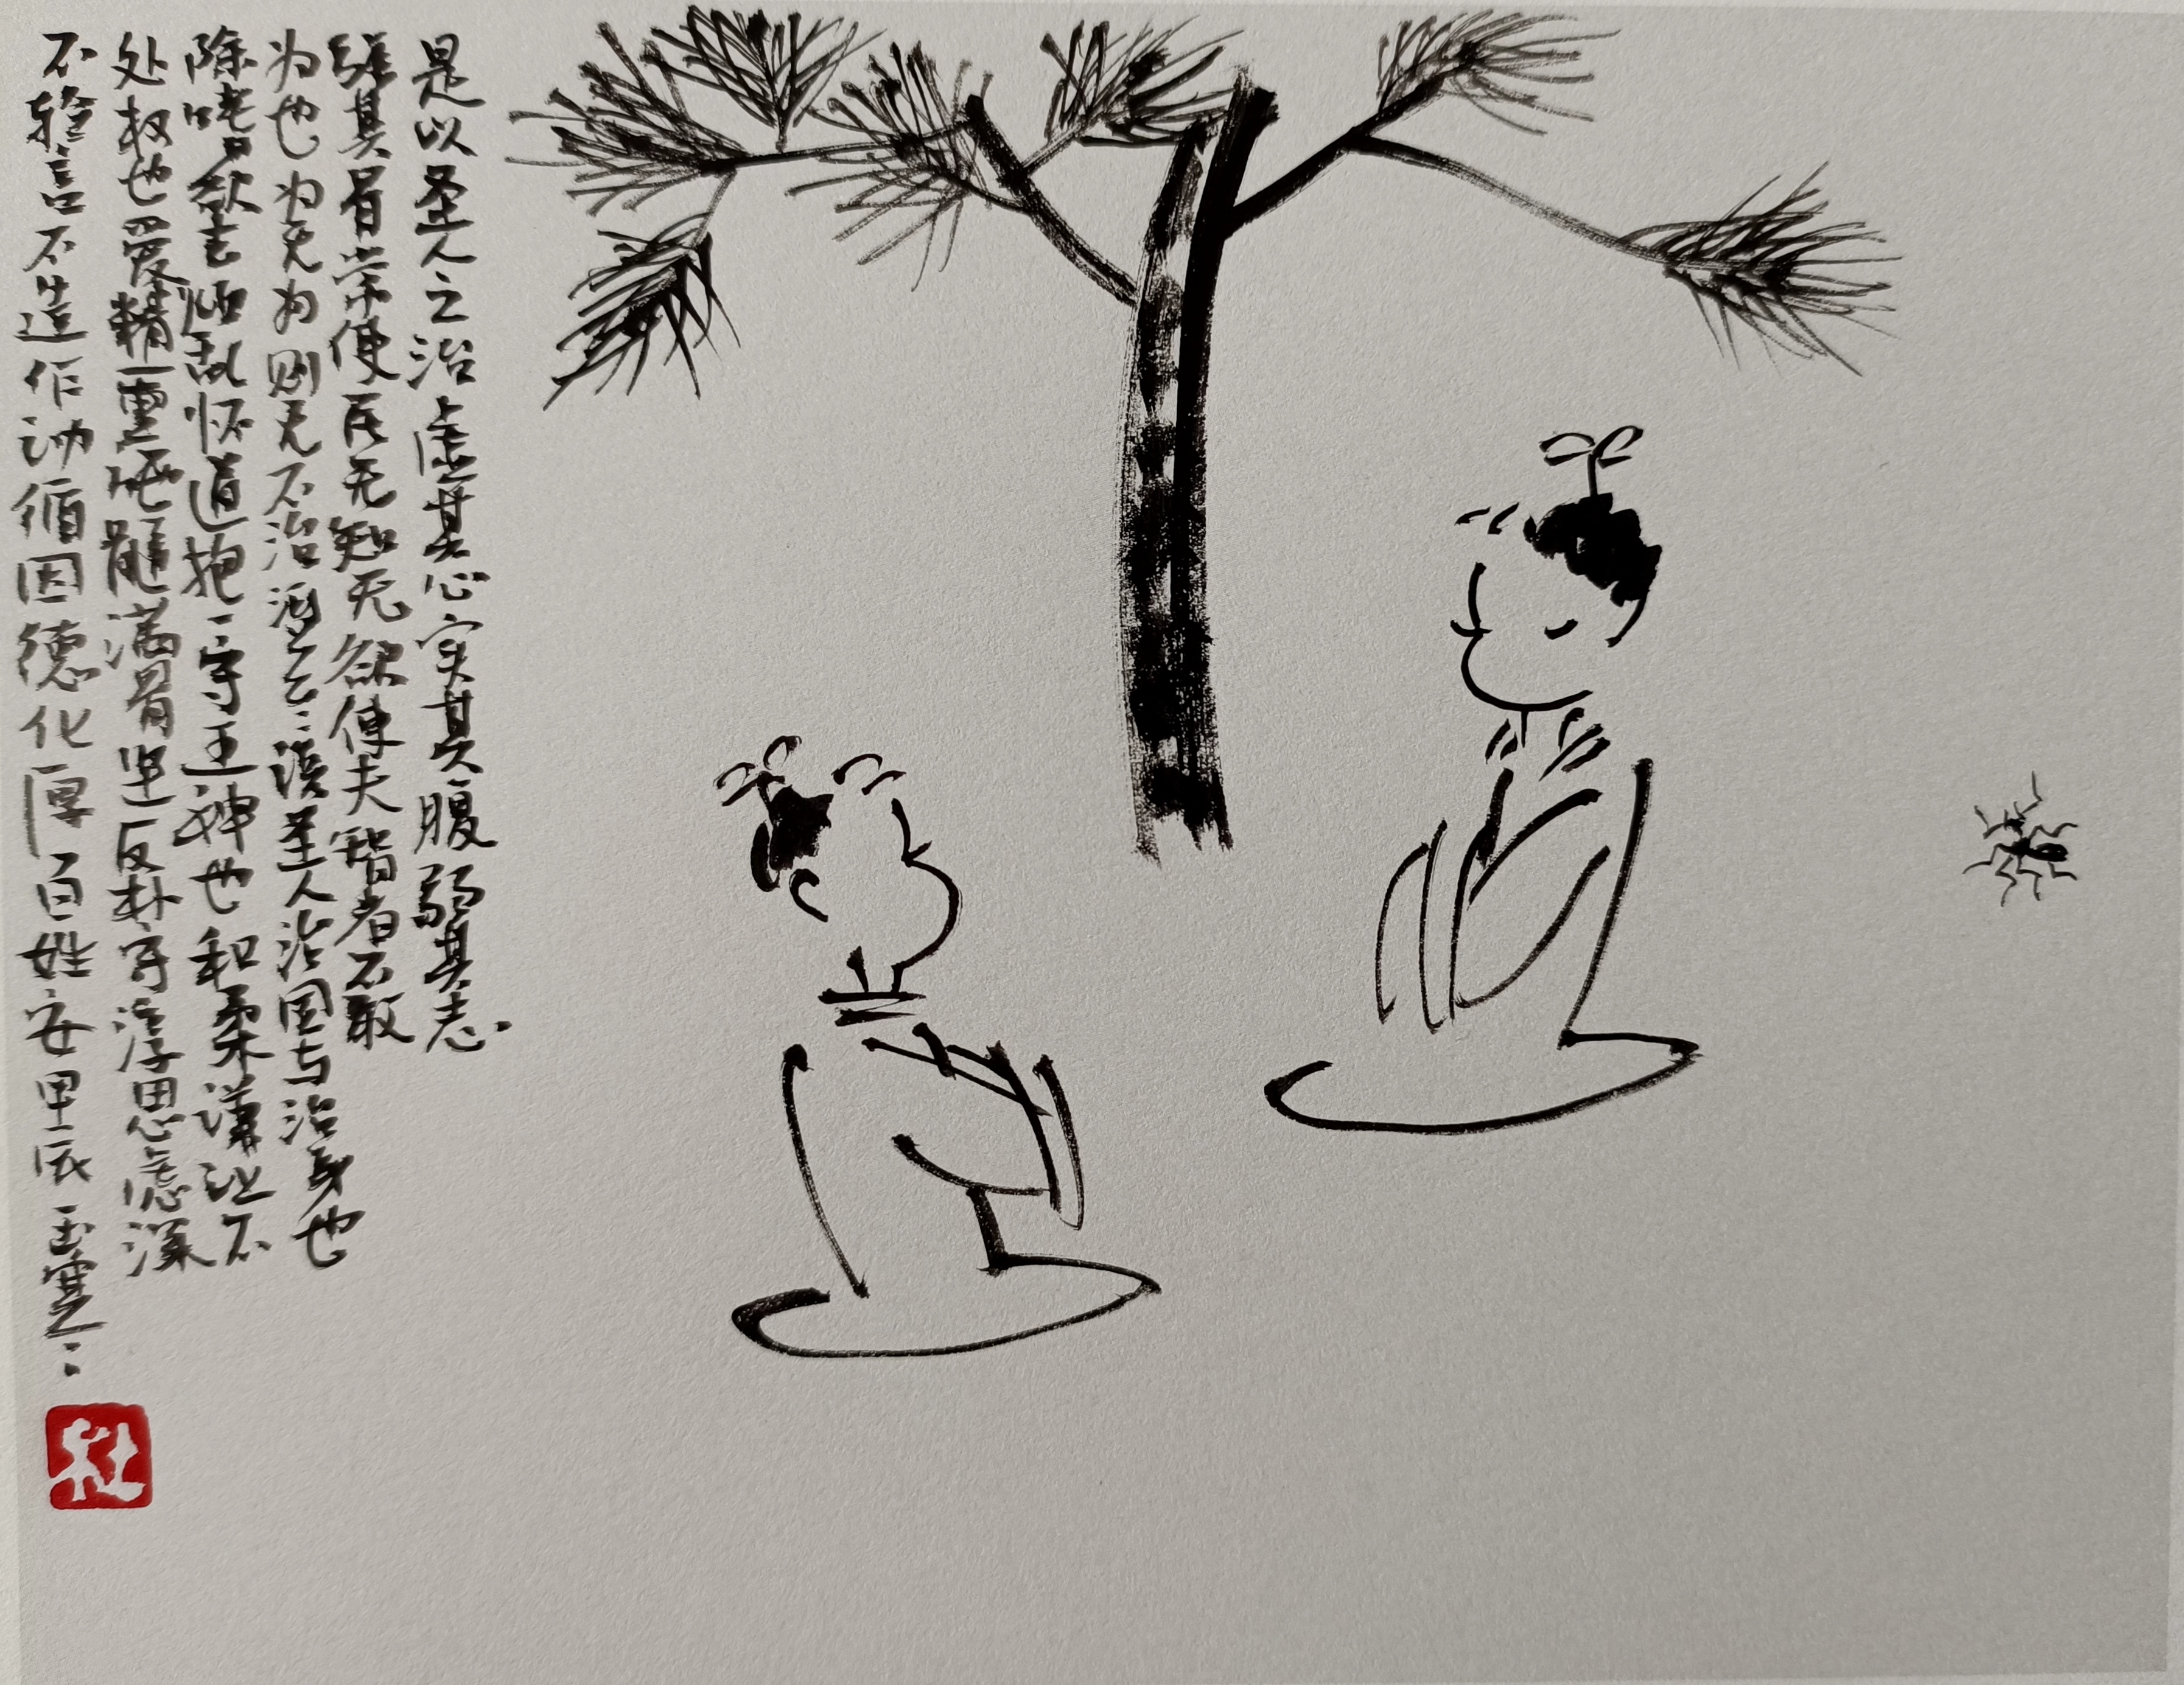 是以圣人之治虚其心实其腹弱其志
强其骨常使民无知无欲使夫智者不敢
为也为无为则无不治河上公：谓圣人治国与治身也
除嗜欲去烦乱怀道抱一守五神也和柔谦让不
处权也爱精重施髓满骨坚反朴守淳思虑深
不轻言不造作动循因德化厚百姓安甲辰玉